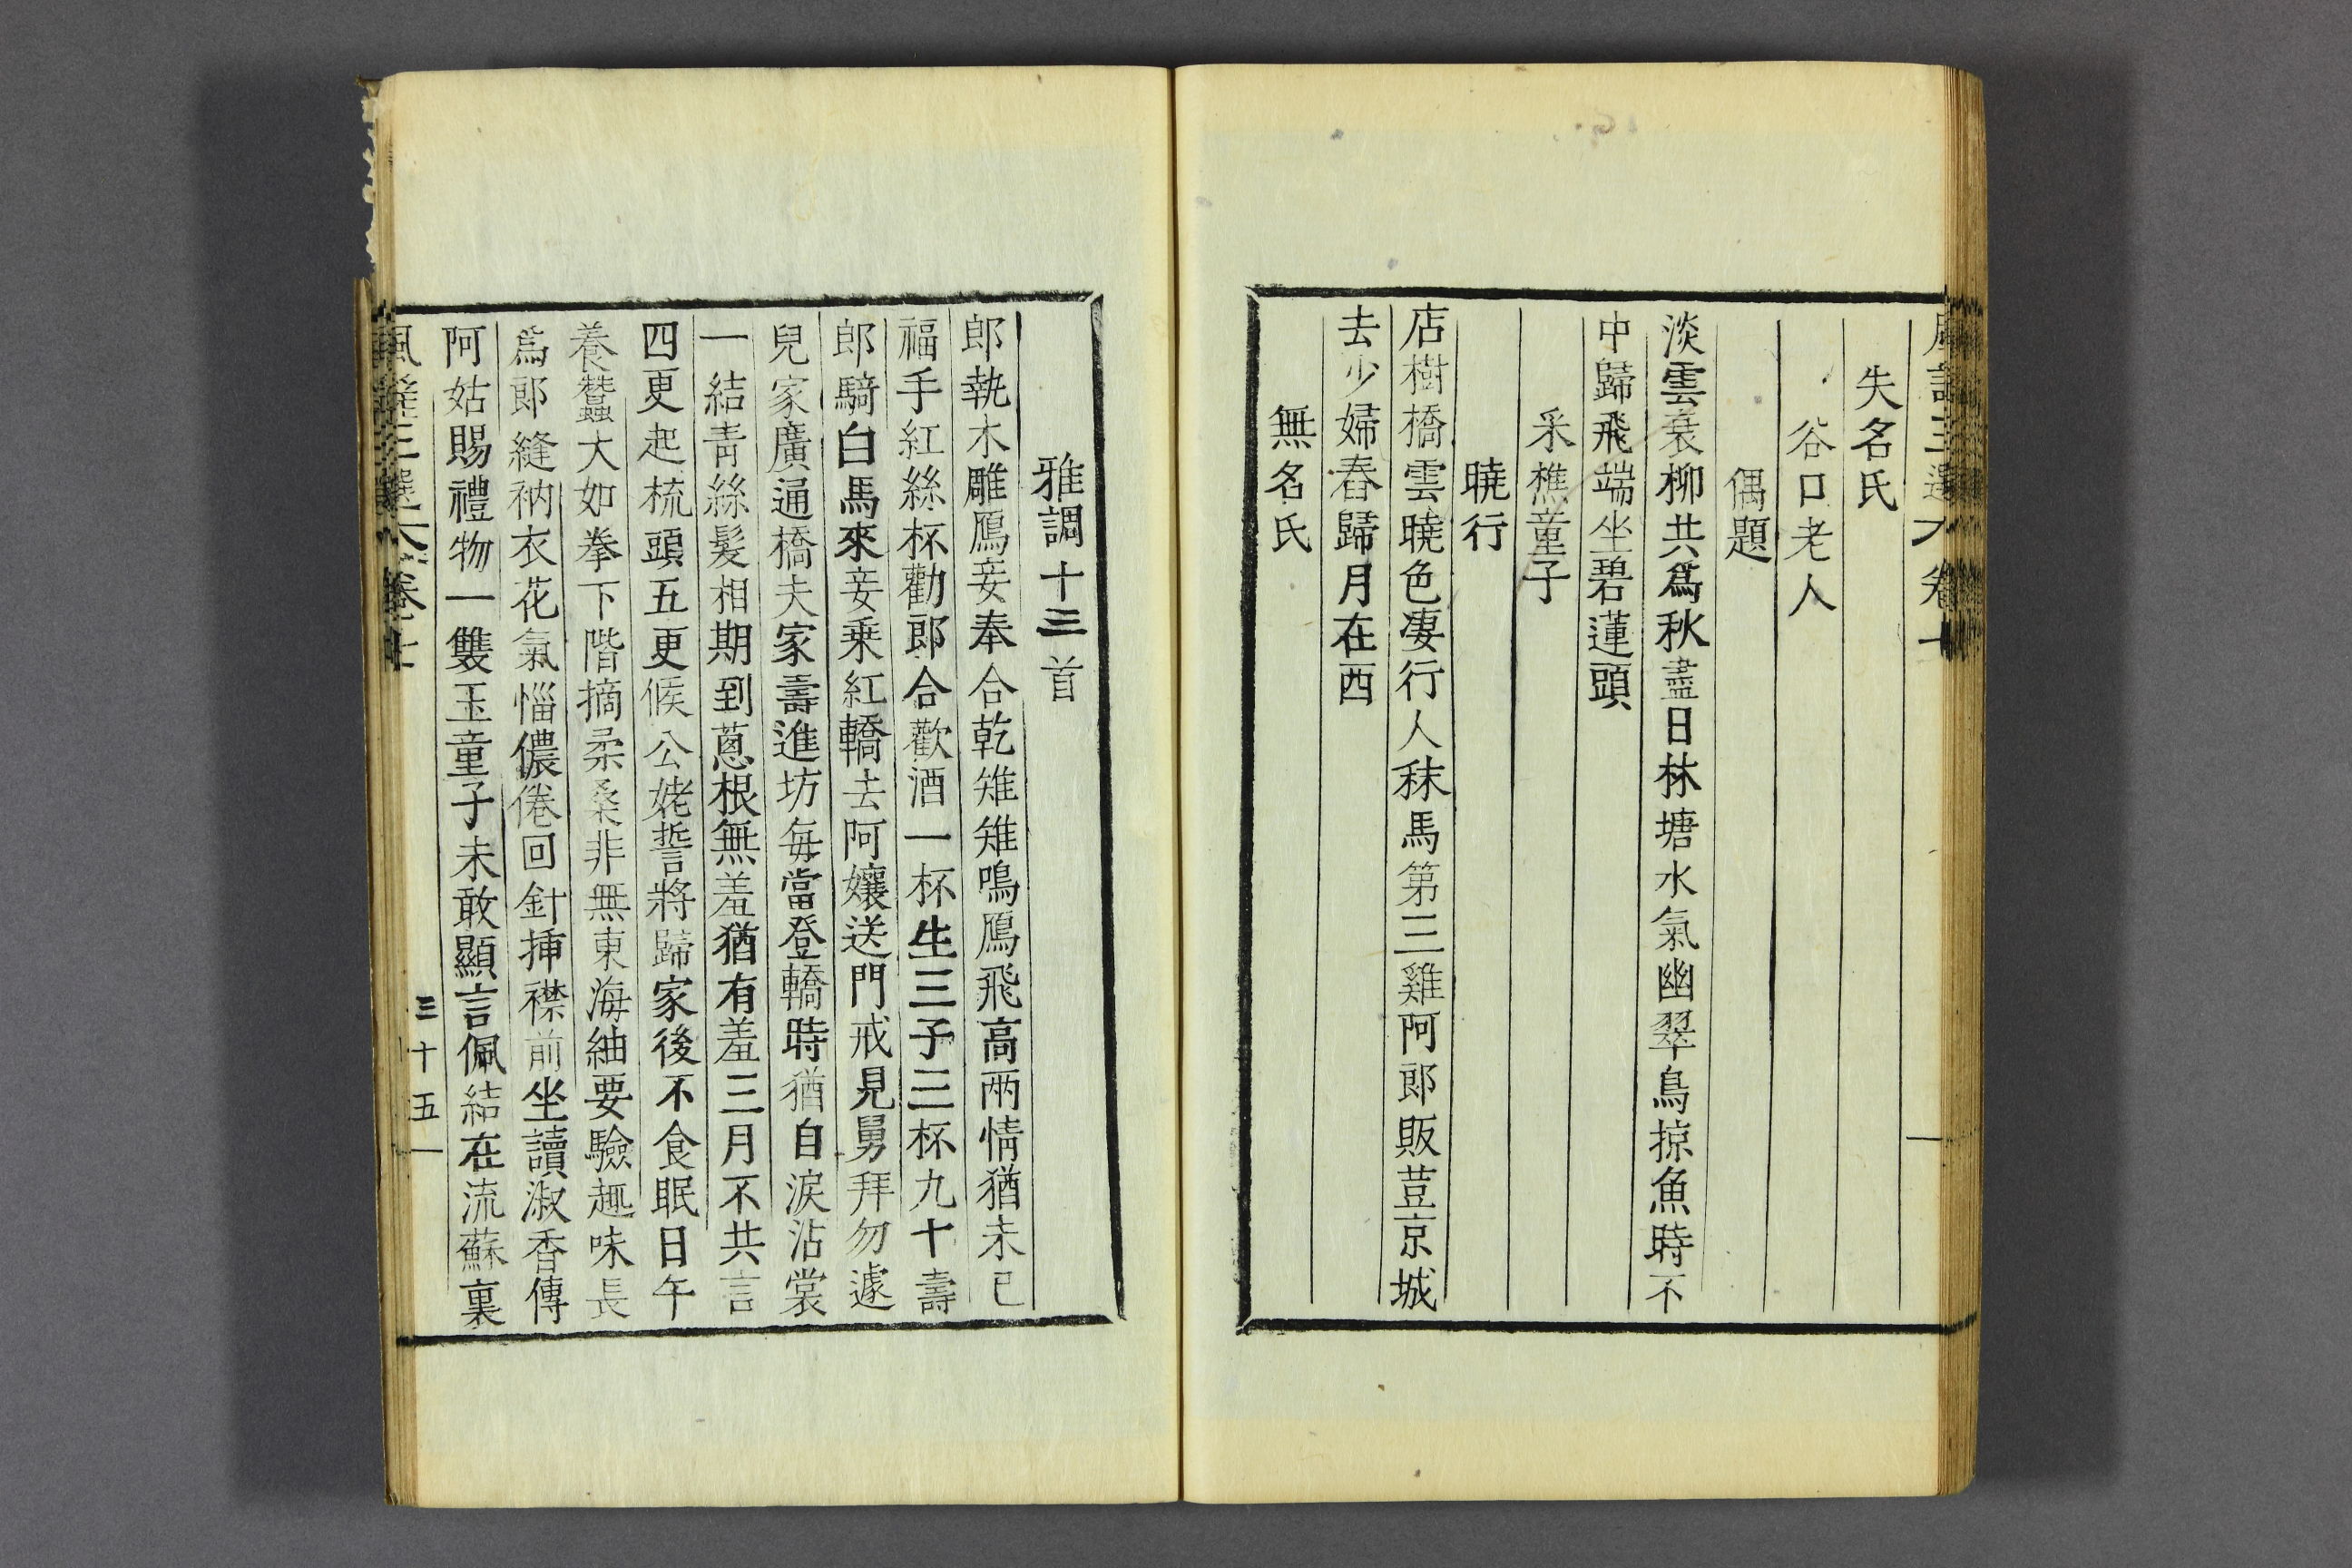 失名氏
谷口老人
偶題
淡雲衰柳共爲秋盡日林塘水氣幽翠鳥掠魚時不
中歸飛端坐碧蓮頭
采樵童子
曉行
店樹橋雲曉色凄行人秣馬第三雞阿郎販荳京城
去少婦舂歸月在西
無名氏
雅調十三首
郎執木雕鴈妾奉合乾雉雉鳴鴈飛高兩情猶未已
福手紅絲杯勸郎合歡酒一杯生三子三杯九十壽
郎騎白馬來妾乗紅轎去阿孃送門戒見舅拜勿遽
兒家廣通橋夫家壽進坊每當登轎時猶自淚沾裳
一結靑絲髮相期到蔥根無羞猶有羞三月不共言
四更起梳頭五更候公姥誓將歸家後不食眠日午
養蠶大如拳下階摘柔桑非無東海紬要驗趣味長
爲郎縫衲衣花氣惱儂倦回針揷襟前坐讀淑香傳
阿姑賜禮物一雙玉童子未敢顯言佩結在流蘇裏
風謠三選 卷七
三十五